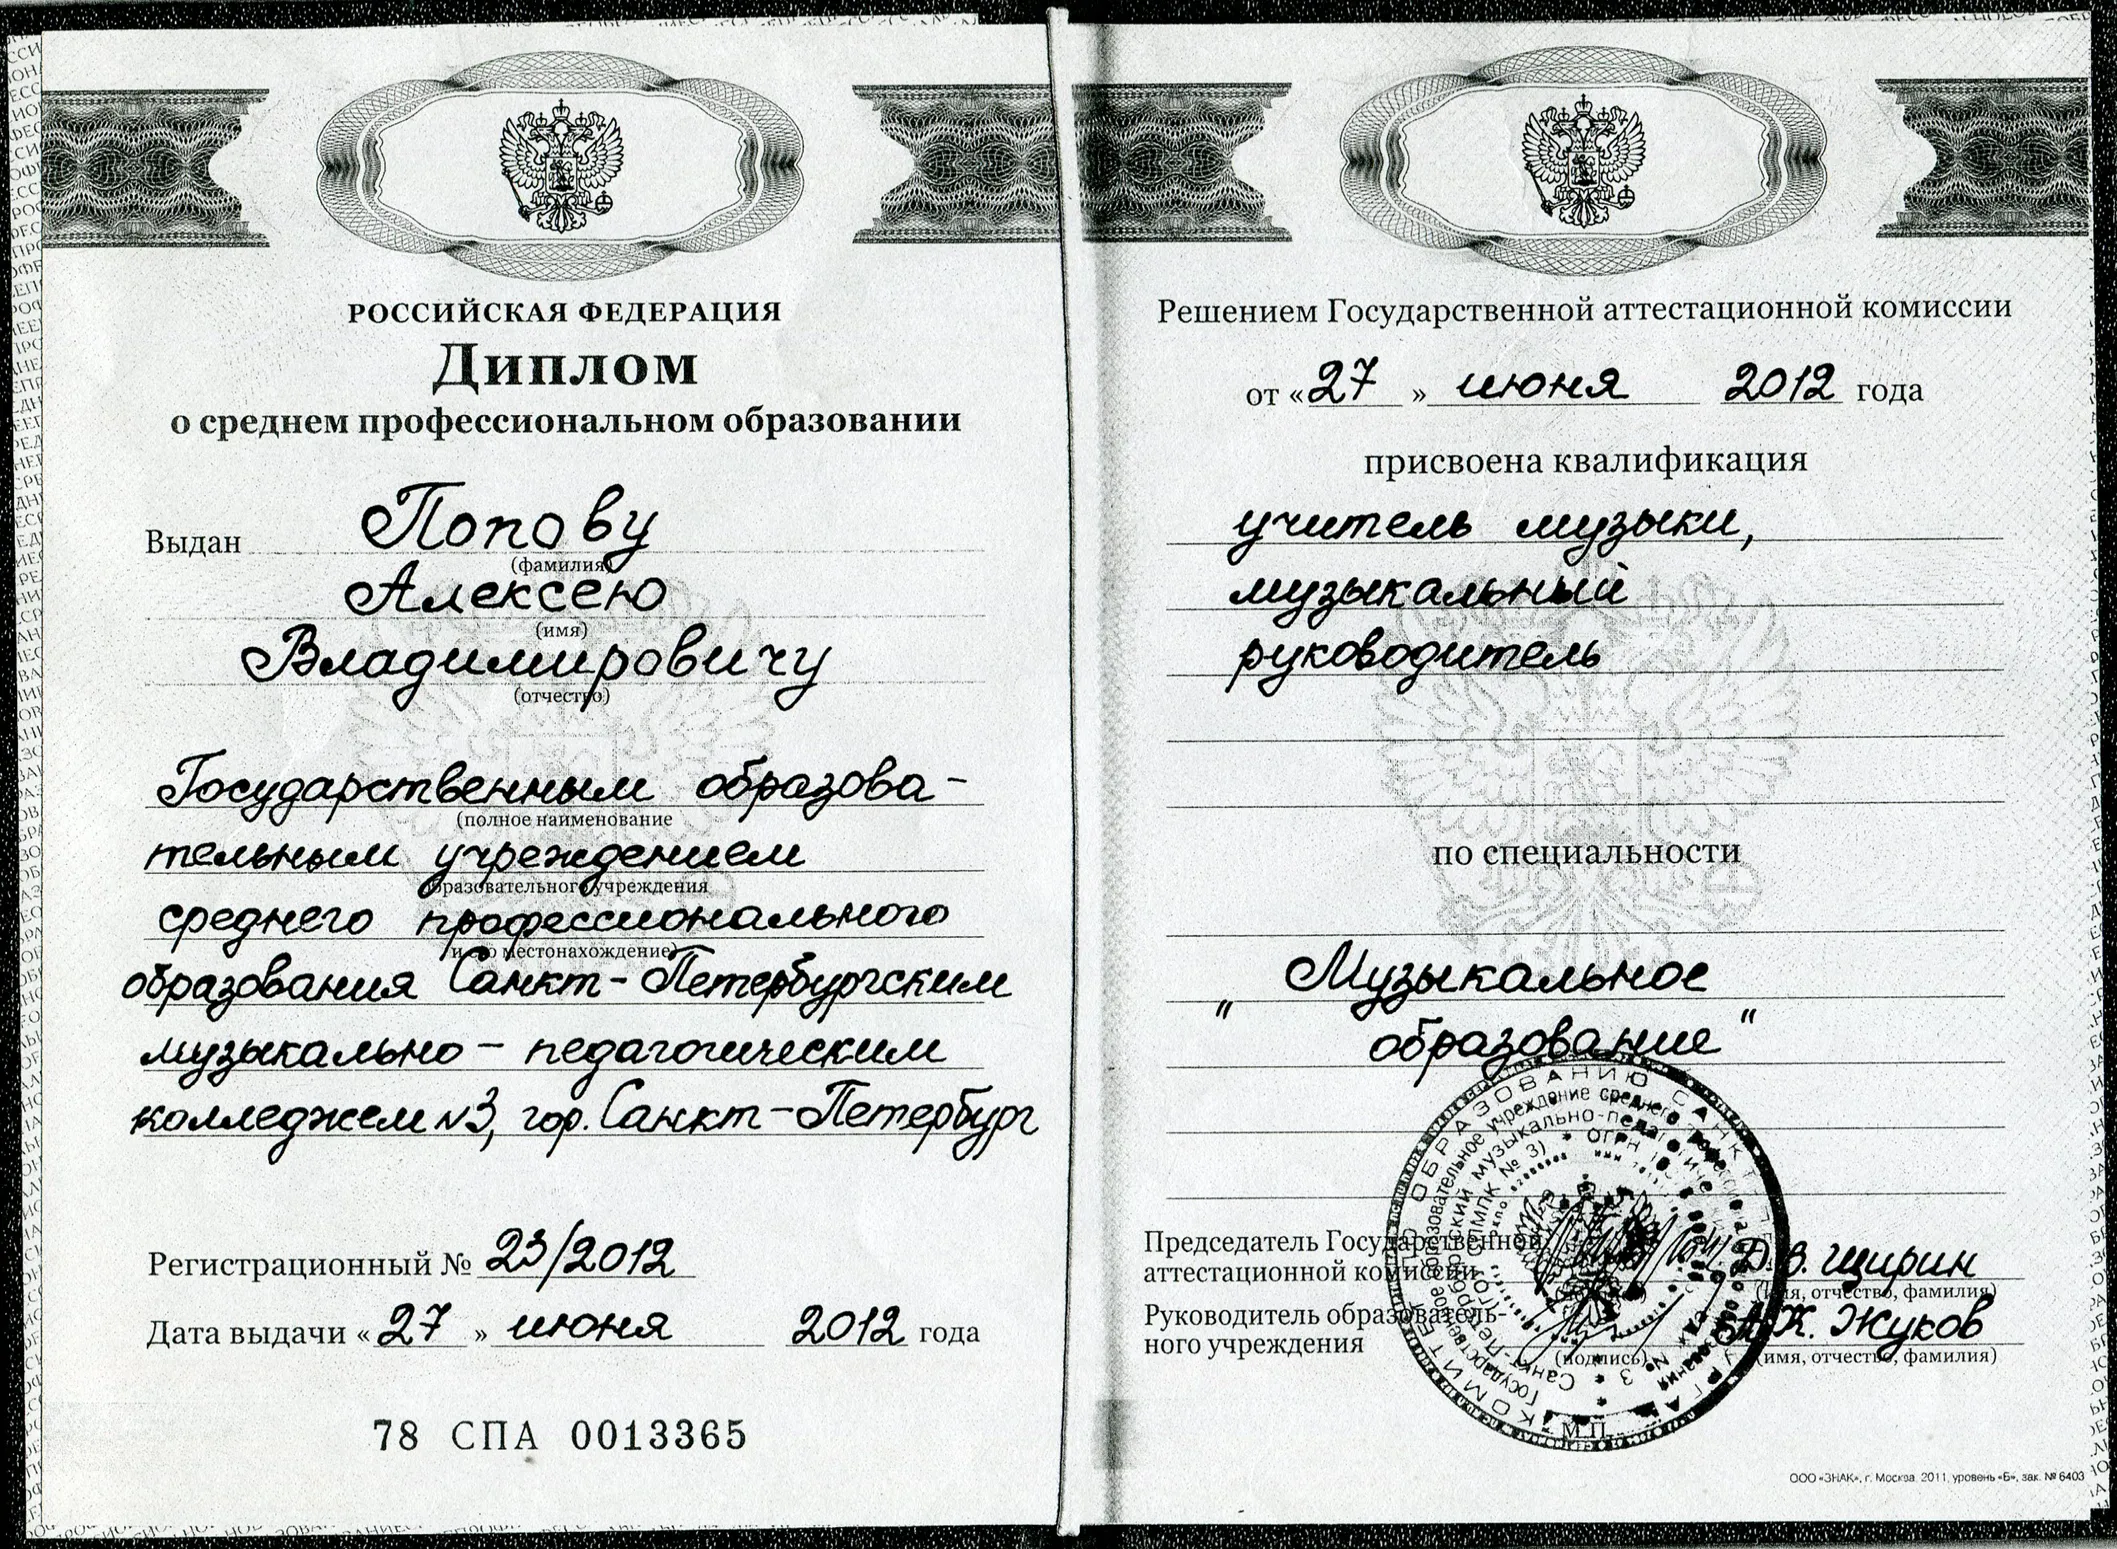 РОССИЙСКАЯ ФЕДЕРАЦИЯ
Диплом
о среднем профессиональном образовании
Выдан Попову
(фамилия)
Алексею
(имя)
Владимировичу
(отчество)
Государственным образова-
(полное наименование
тельным учреждением
образовательного учреждения
среднего профессионального
и его местонахождение)
образования Санкт-Петербургским
музыкально-педагогическим
колледжем N3, гор. Санкт-Петербург
Регистрационный № 23/2012
Дата выдачи «27» июня 2012 года
78 СПА 0013365
Решением Государственной аттестационной комиссии
от «27» июня 2012 года
присвоена квалификация
учитель музыки,
музыкальный
руководитель
по специальности
„ Музыкальное
образование "
Председатель Государственной
аттестационной комиссии Д.В. Щирин
(имя, отчество, фамилия)
Руководитель образователь-
ного учреждения А.К. Жуков
(подпись) (имя, отчество, фамилия)
М.П.
ООО «ЗНАК», г. Москва, 2011, уровень «Б», зак. № 6403